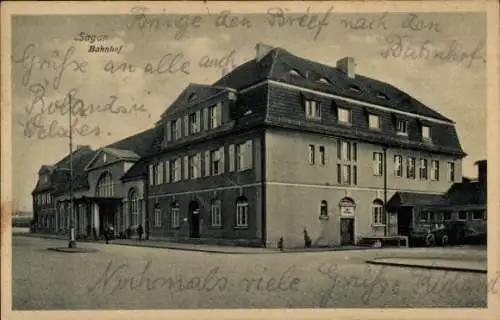 Bringe den Brief nach dem
Bahnhof.
Sagan
Bahnhof
Grüße an alle auch
Rolands u
Nochmals viele Grüße Richard